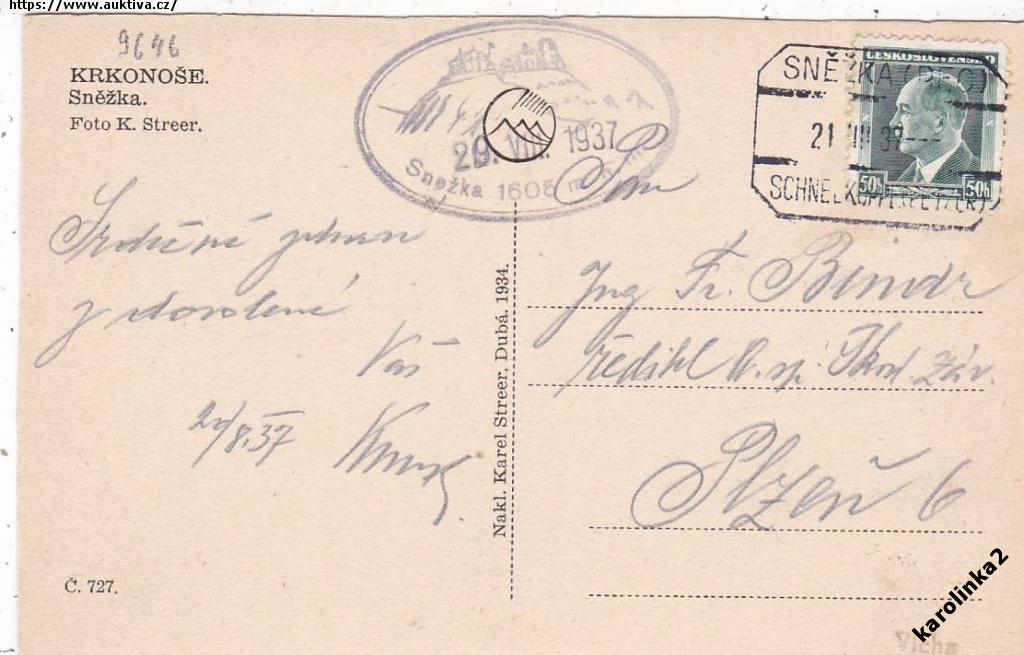 https://www.auktiva.cz/
9646
KRKONOŠE.
Sněžka.
Foto K. Streer.
29. VIII. 1937
Sněžka 1605 m n. m.
SNĚŽKA
21 VIII 37
SCHNEEKOPPE
ČESKOSLOVENSKO
50h 50h
Srdečné
z dovolené
Váš
8.37
Nakl. Karel Streer, Dubá. 1934.
Pan
Ing Fr. Binder
ředitel Škod. záv.
Plzeň 6
Č. 727.
karolinka2